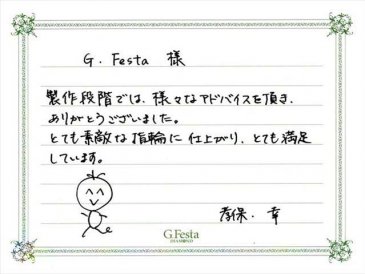 G. Festa 様
製作段階では、様々なアドバイスを頂き、
ありがとうございました。
とても素敵な指輪に仕上がり、とても満足
しています。
孝保・幸
G.Festa
DIAMOND